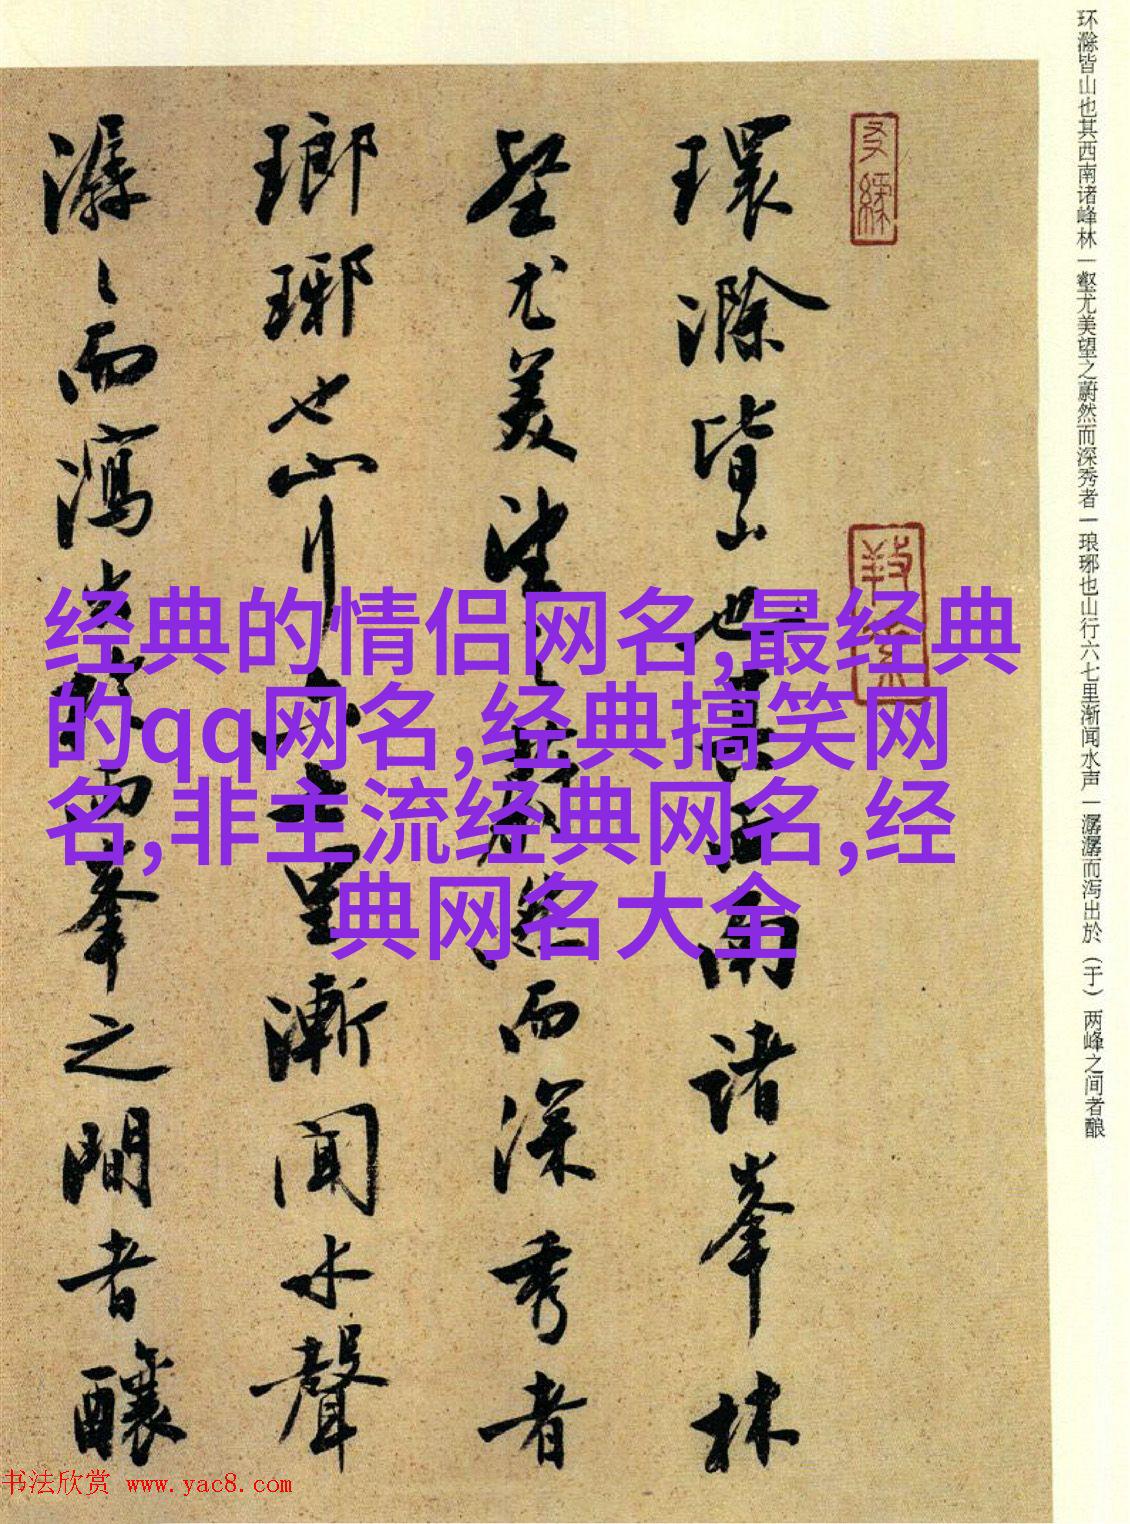 环滁皆山也其西南诸峰林—壑尤美望之蔚然而深秀者—琅琊也山行六七里渐闻水声—潺潺而泻出於（于）两峰之间者酿
環滁皆山也其西南諸峯林
壑尤美望之蔚然而深秀者
瑯琊也山行六七里漸聞水聲
潺〻而瀉出於兩峯之間者釀
经典的情侣网名,最经典
的qq网名,经典搞笑网
名,非主流经典网名,经
典网名大全
书法欣赏 www.yac8.com